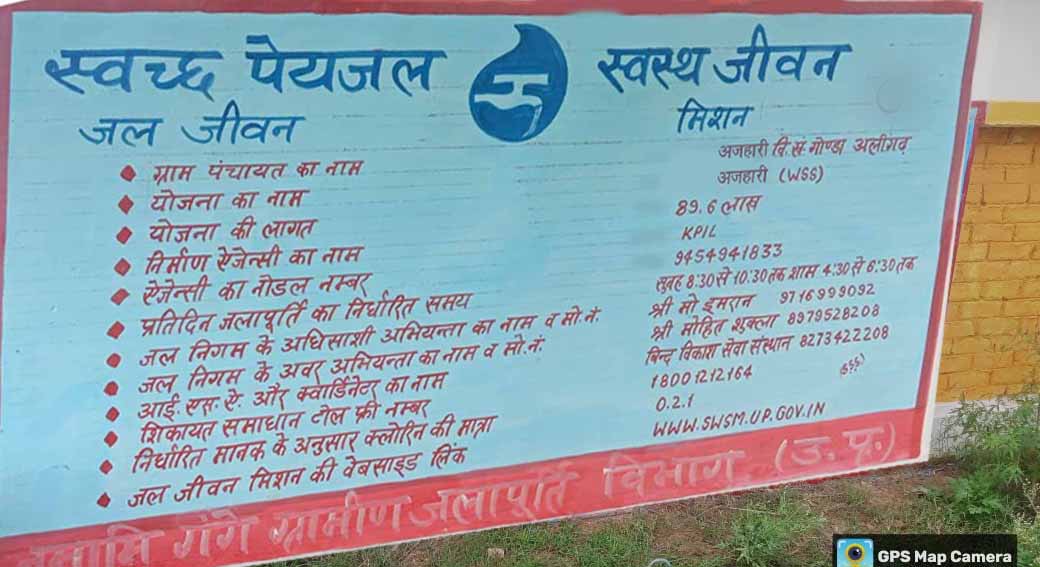 स्वच्छ पेयजल स्वस्थ जीवन
जल जीवन मिशन
ग्राम पंचायत का नाम अजहारी वि.सं. गोण्डा अलीगढ़
योजना का नाम अजहारी (WSS)
योजना की लागत 89.6 लाख
निर्माण ऐजेन्सी का नाम KPIL
ऐजेन्सी का नोडल नम्बर 9454941833
प्रतिदिन जलापूर्ति का निर्धारित समय सुबह 8:30 से 10:30 तक शाम 4:30 से 6:30 तक
जल निगम के अधिसाशी अभियन्ता का नाम व मो.नं. श्री मो इमरान 9716999092
जल निगम के अवर अभियन्ता का नाम व मो.नं. श्री मोहित शुक्ला 8979528208
आई.एस.ऐ. और क्वार्डिनेटर का नाम बिन्द विकाश सेवा संस्थान 8273422208
शिकायत समाधान टोल फ्री नम्बर 18001212164
निर्धारित मानक के अनुसार क्लोरिन की मात्रा 0.2.1
जल जीवन मिशन की वेबसाइड लिंक WWW.SWSM.UP.GOV.IN
नमामि गंगे ग्रामीण जलापूर्ति विभाग, (उ.प्र.)
GPS Map Camera